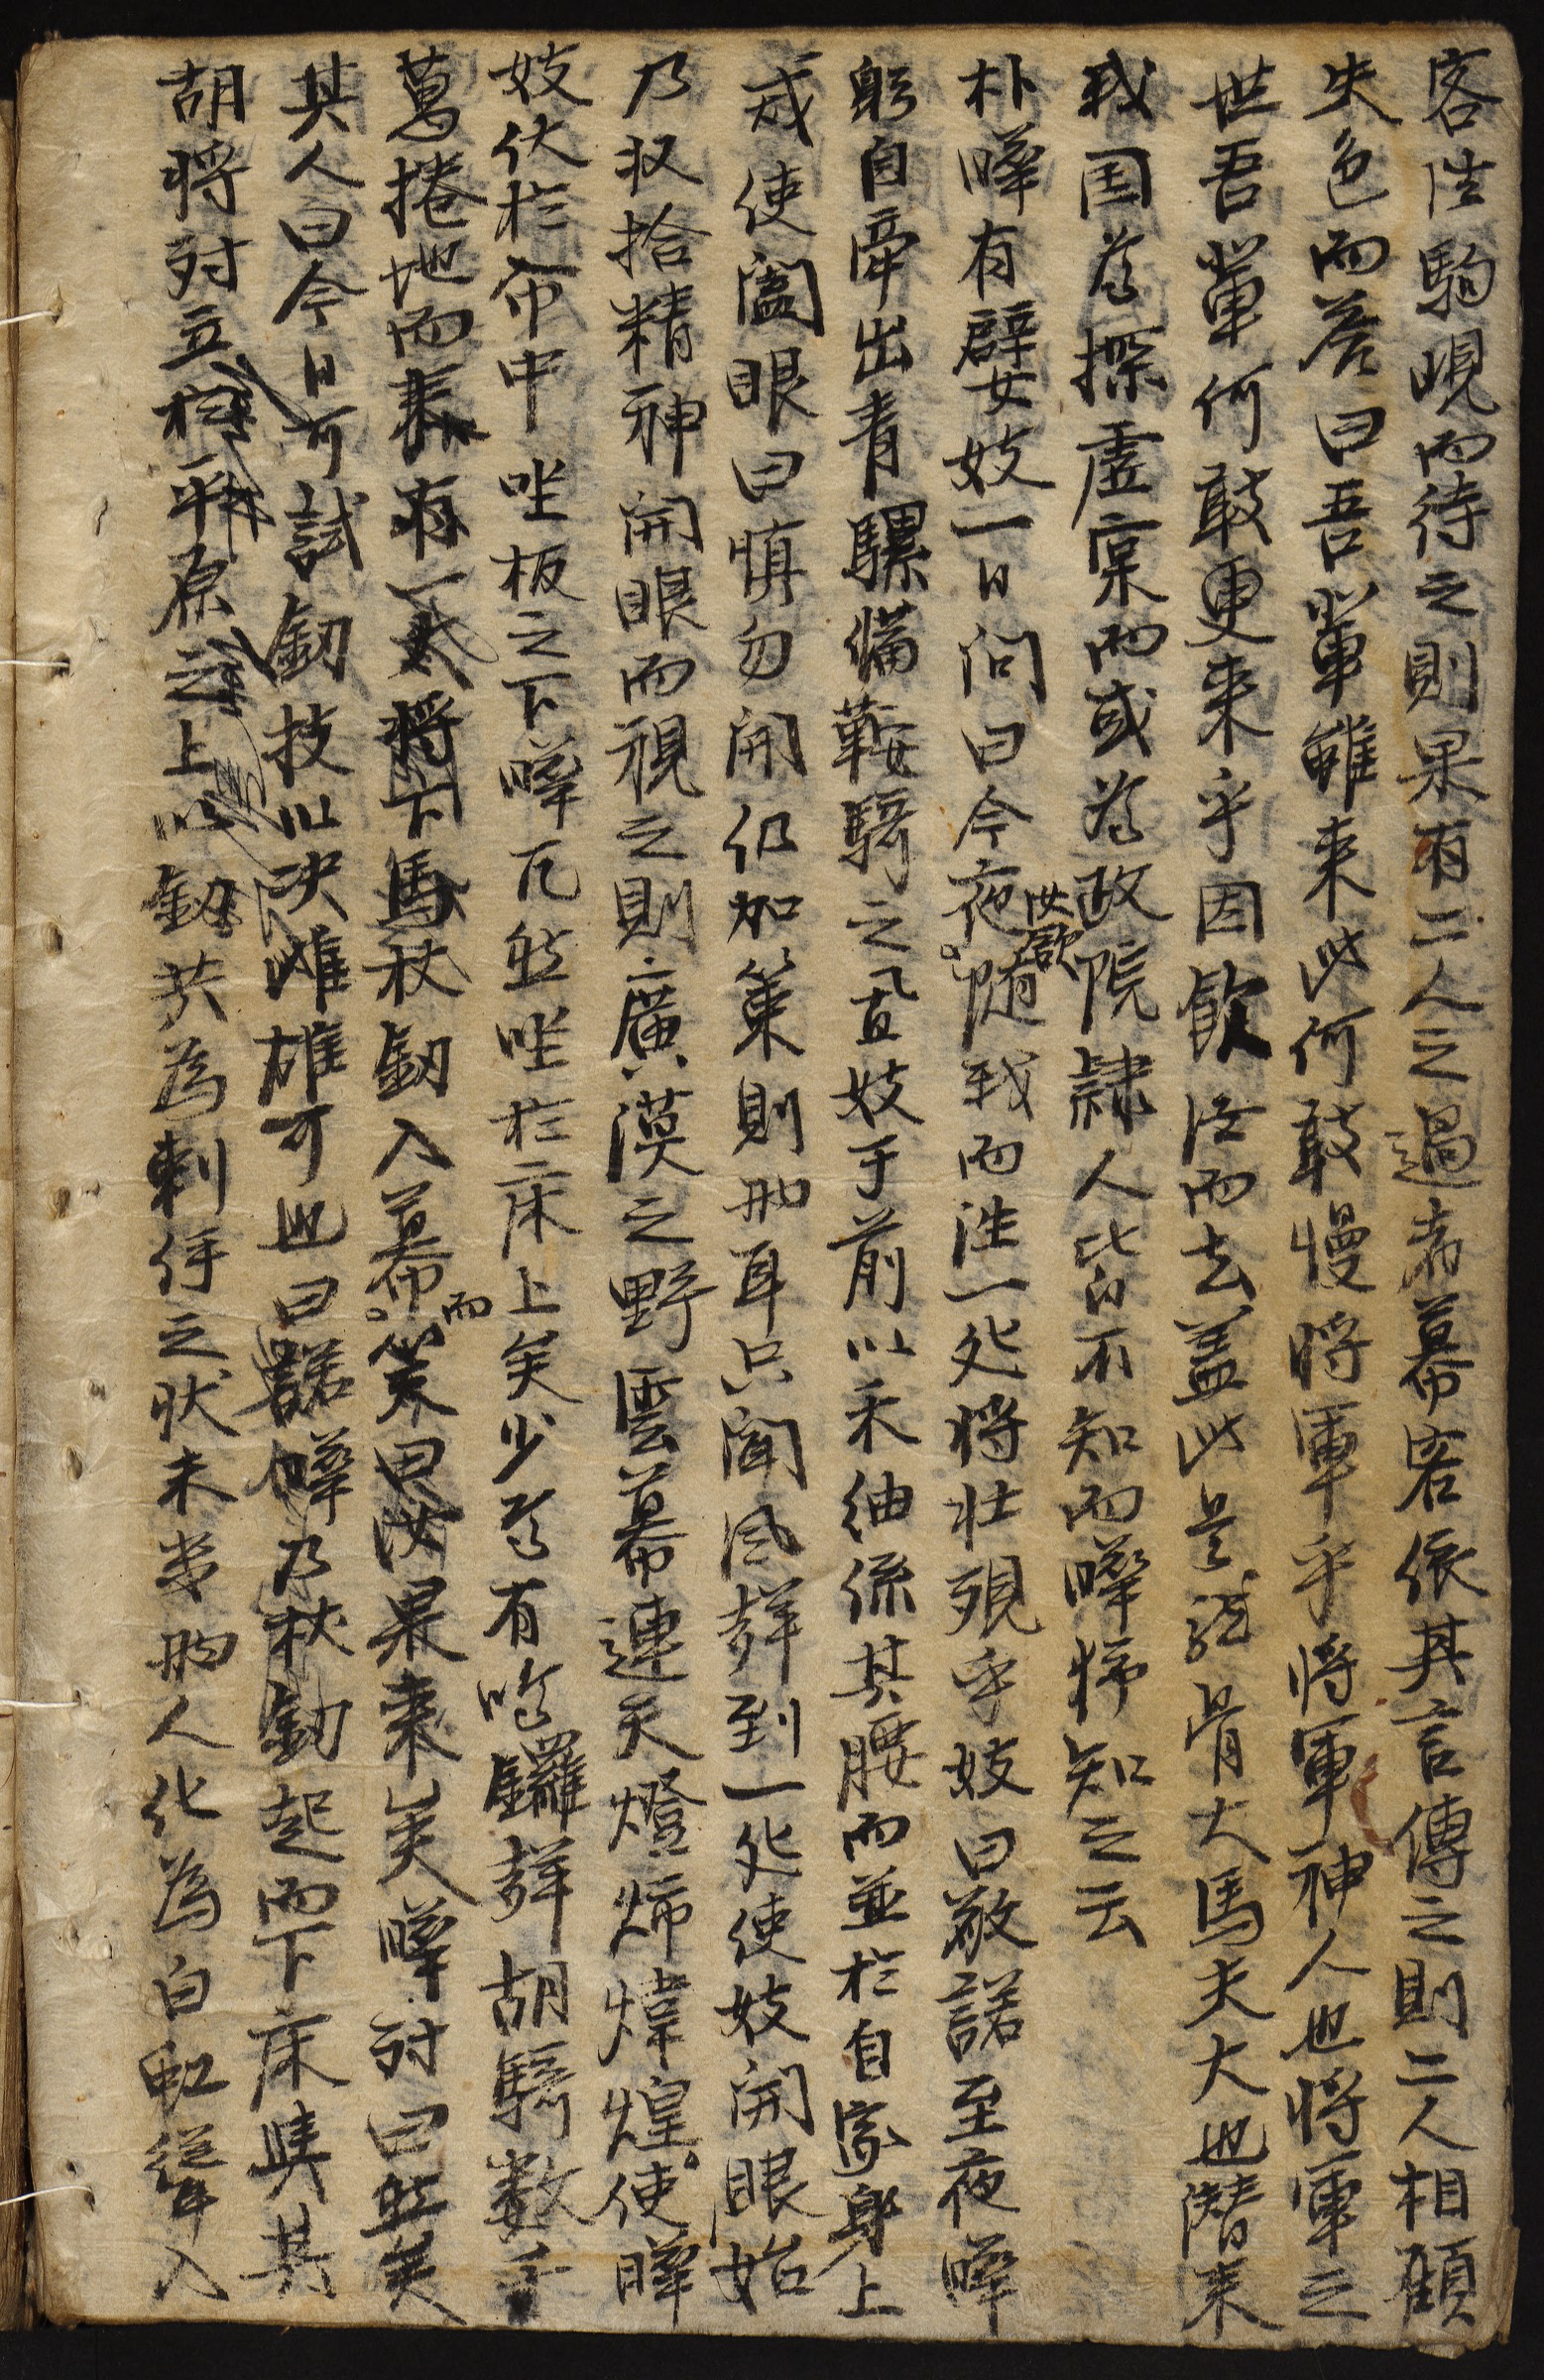 客徃駒峴而待之則果有二人之過者幕客依其言傳之則二人相顧
失色而答曰吾輩雖来此何敢慢将軍乎将軍神人也将軍之
世吾輩何敢更来乎因飮酒而去盖此是龍骨大馬夫大也潜来
我国爲探虚実而或爲政院隷人皆不知而曄獨知之云
朴曄有嬖妓一日问曰今夜汝欲随我而徃一处将壮覌乎妓曰敬諾至夜曄
躬自牽出青騾備鞍騎之置妓于前以禾紬係其腰而並於自家身上
戒使闔眼曰慎勿開仍加策則両耳只聞风声到一处使妓開眼始
乃収拾精神開眼而視之則廣漠之野雲幕連天燈燭煒煌使曄
妓伏於帘中坐板之下曄兀然坐於床上矣少焉有鳴鑼声胡騎数千
萬捲地而来有一大将下馬杖釼入幕而笑曰汝果来矣曄対曰然矣
其人曰今日可試釼技以决雌雄可也曰諾曄乃杖釼起而下床與其
胡将対立於平原之上以釼共為刺伐之状未幾両人化為白虹聳入